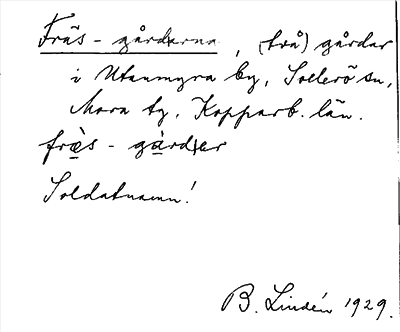 Fräs-gårdarna, (två) gårdar
i Utanmyra by, Sollerö sn,
Mora tg, Kopparb. län.
frȩ̀s - gàrdɩer
Soldatnamn!
B. Lindén 1929.